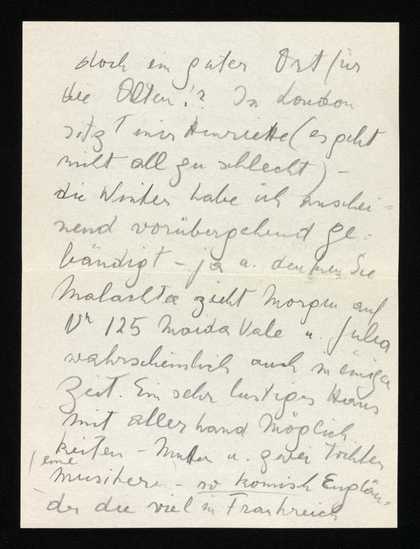 doch ein guter Ort für
die Alten!? In London
sitzt mir Henriette (es geht
nicht all zu schlecht) –
die Winter habe ich anschei-
nend vorübergehend ge-
bändigt – ja u. denken Sie
zieht Morgen auf
Nr 125 Maida Vale u. Julia
wahrscheinlich auch in einiger
Zeit. Ein sehr lustiges Haus
mit allerhand Möglich
keiten – Mutter u. zwei Töchter
(eine
– so komisch Englän-
der die viel in Frankreich